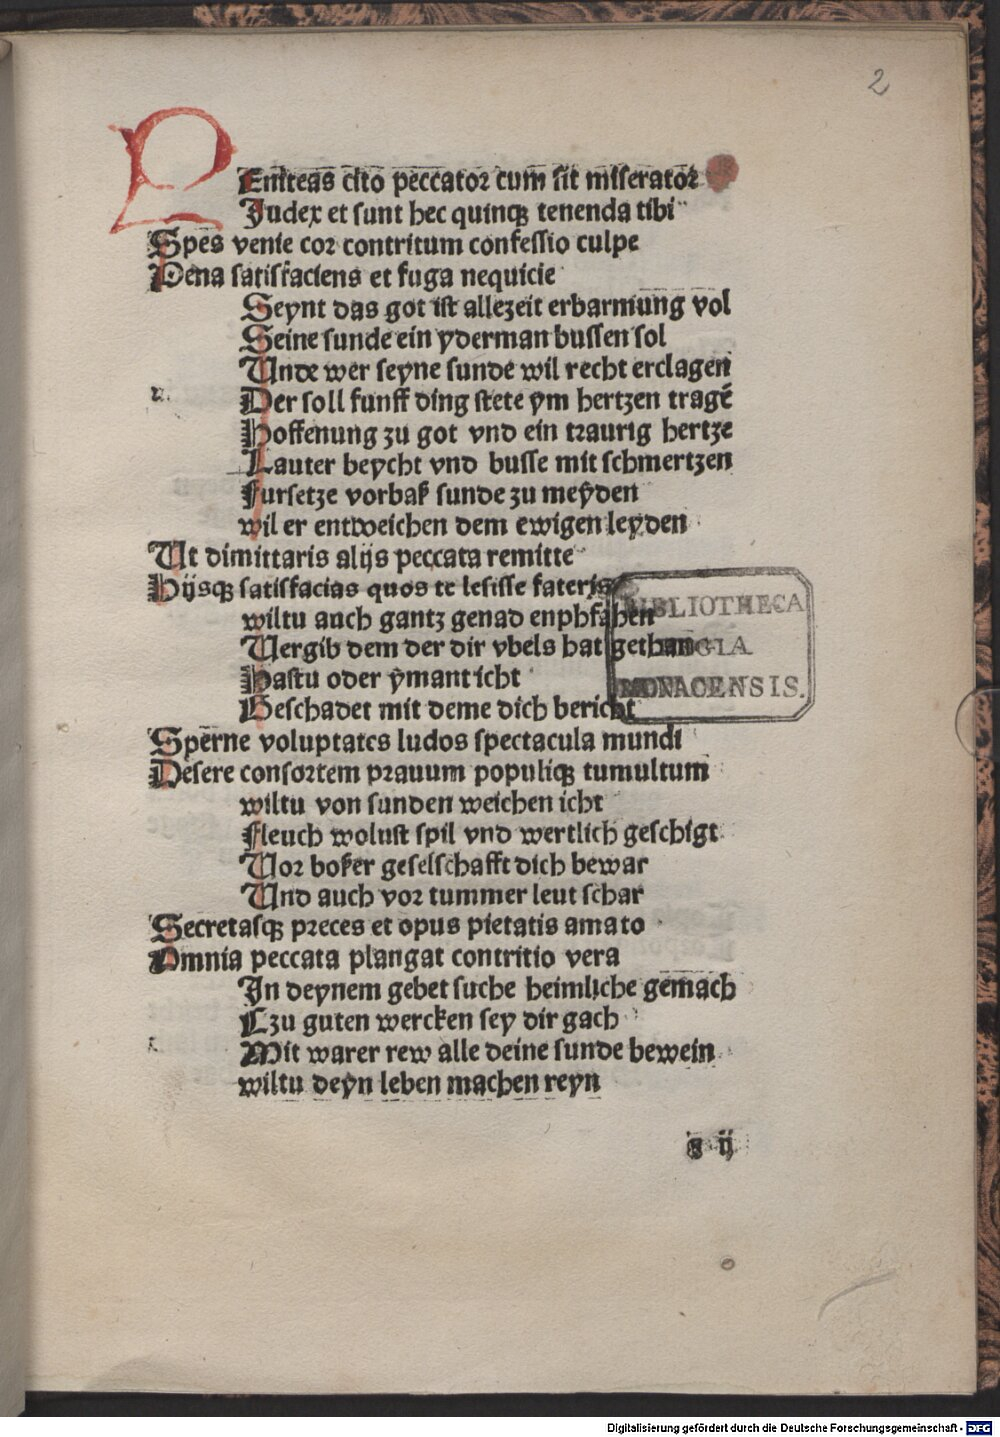 2
PEniteas cito peccatoꝛ cum ſit miſeratoꝛ
Judex et ſunt hec quinqꝫ tenenda tibi
Spes venie coꝛ contritum confeſſio culpe
Pena ſatiſfaciens et fuga nequicie
Seynt das got iſt allezeit erbarmung vol
Seine ſunde ein yderman buſſen ſol
Unde wer ſeyne ſunde wil recht erclagen
Der ſoll funff ding ſtete ym hertzen tragē
Hoffenung zu got vnd ein traurig hertze
Lauter beycht vnd buſſe mit ſchmertzen
Furſetze vorbaß ſunde zu meÿden
wil er entweichen dem ewigen leyden
Ut dimittaris alijs peccata remitte
Hijsqꝫ ſatiſfacias quos te leſiſſe fateris
wiltu auch gantz genad enphfahen
Vergib dem der dir vbels hat gethan
Haſtu oder ÿmant icht
Geſchadet mit deme dich bericht
BIBLIOTHECA
REGIA
MONACENSIS.
Sperne voluptates ludos ſpectacula mundi
Deſere conſoꝛtem pꝛauum populiqꝫ tumultum
wiltu von ſunden weichen icht
Fleuch woluſt ſpil vnd wertlich geſchigt
Voꝛ boßer geſelſchafft dich bewar
Und auch voꝛ tummer leut ſchar
Secretaſqꝫ pꝛeces et opus pietatis amato
Omnia peccata plangat contritio vera
In deynem gebet ſuche heimliche gemach
Czu guten wercken ſey dir gach
Mit warer rew alle deine ſunde bewein
wiltu deyn leben machen reyn
ij
Digitalisierung gefördert durch die Deutsche Forschungsgemeinschaft - DFG